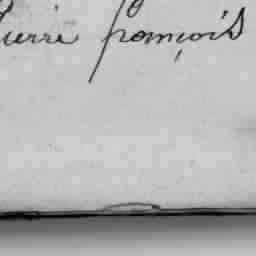 Pierre françois